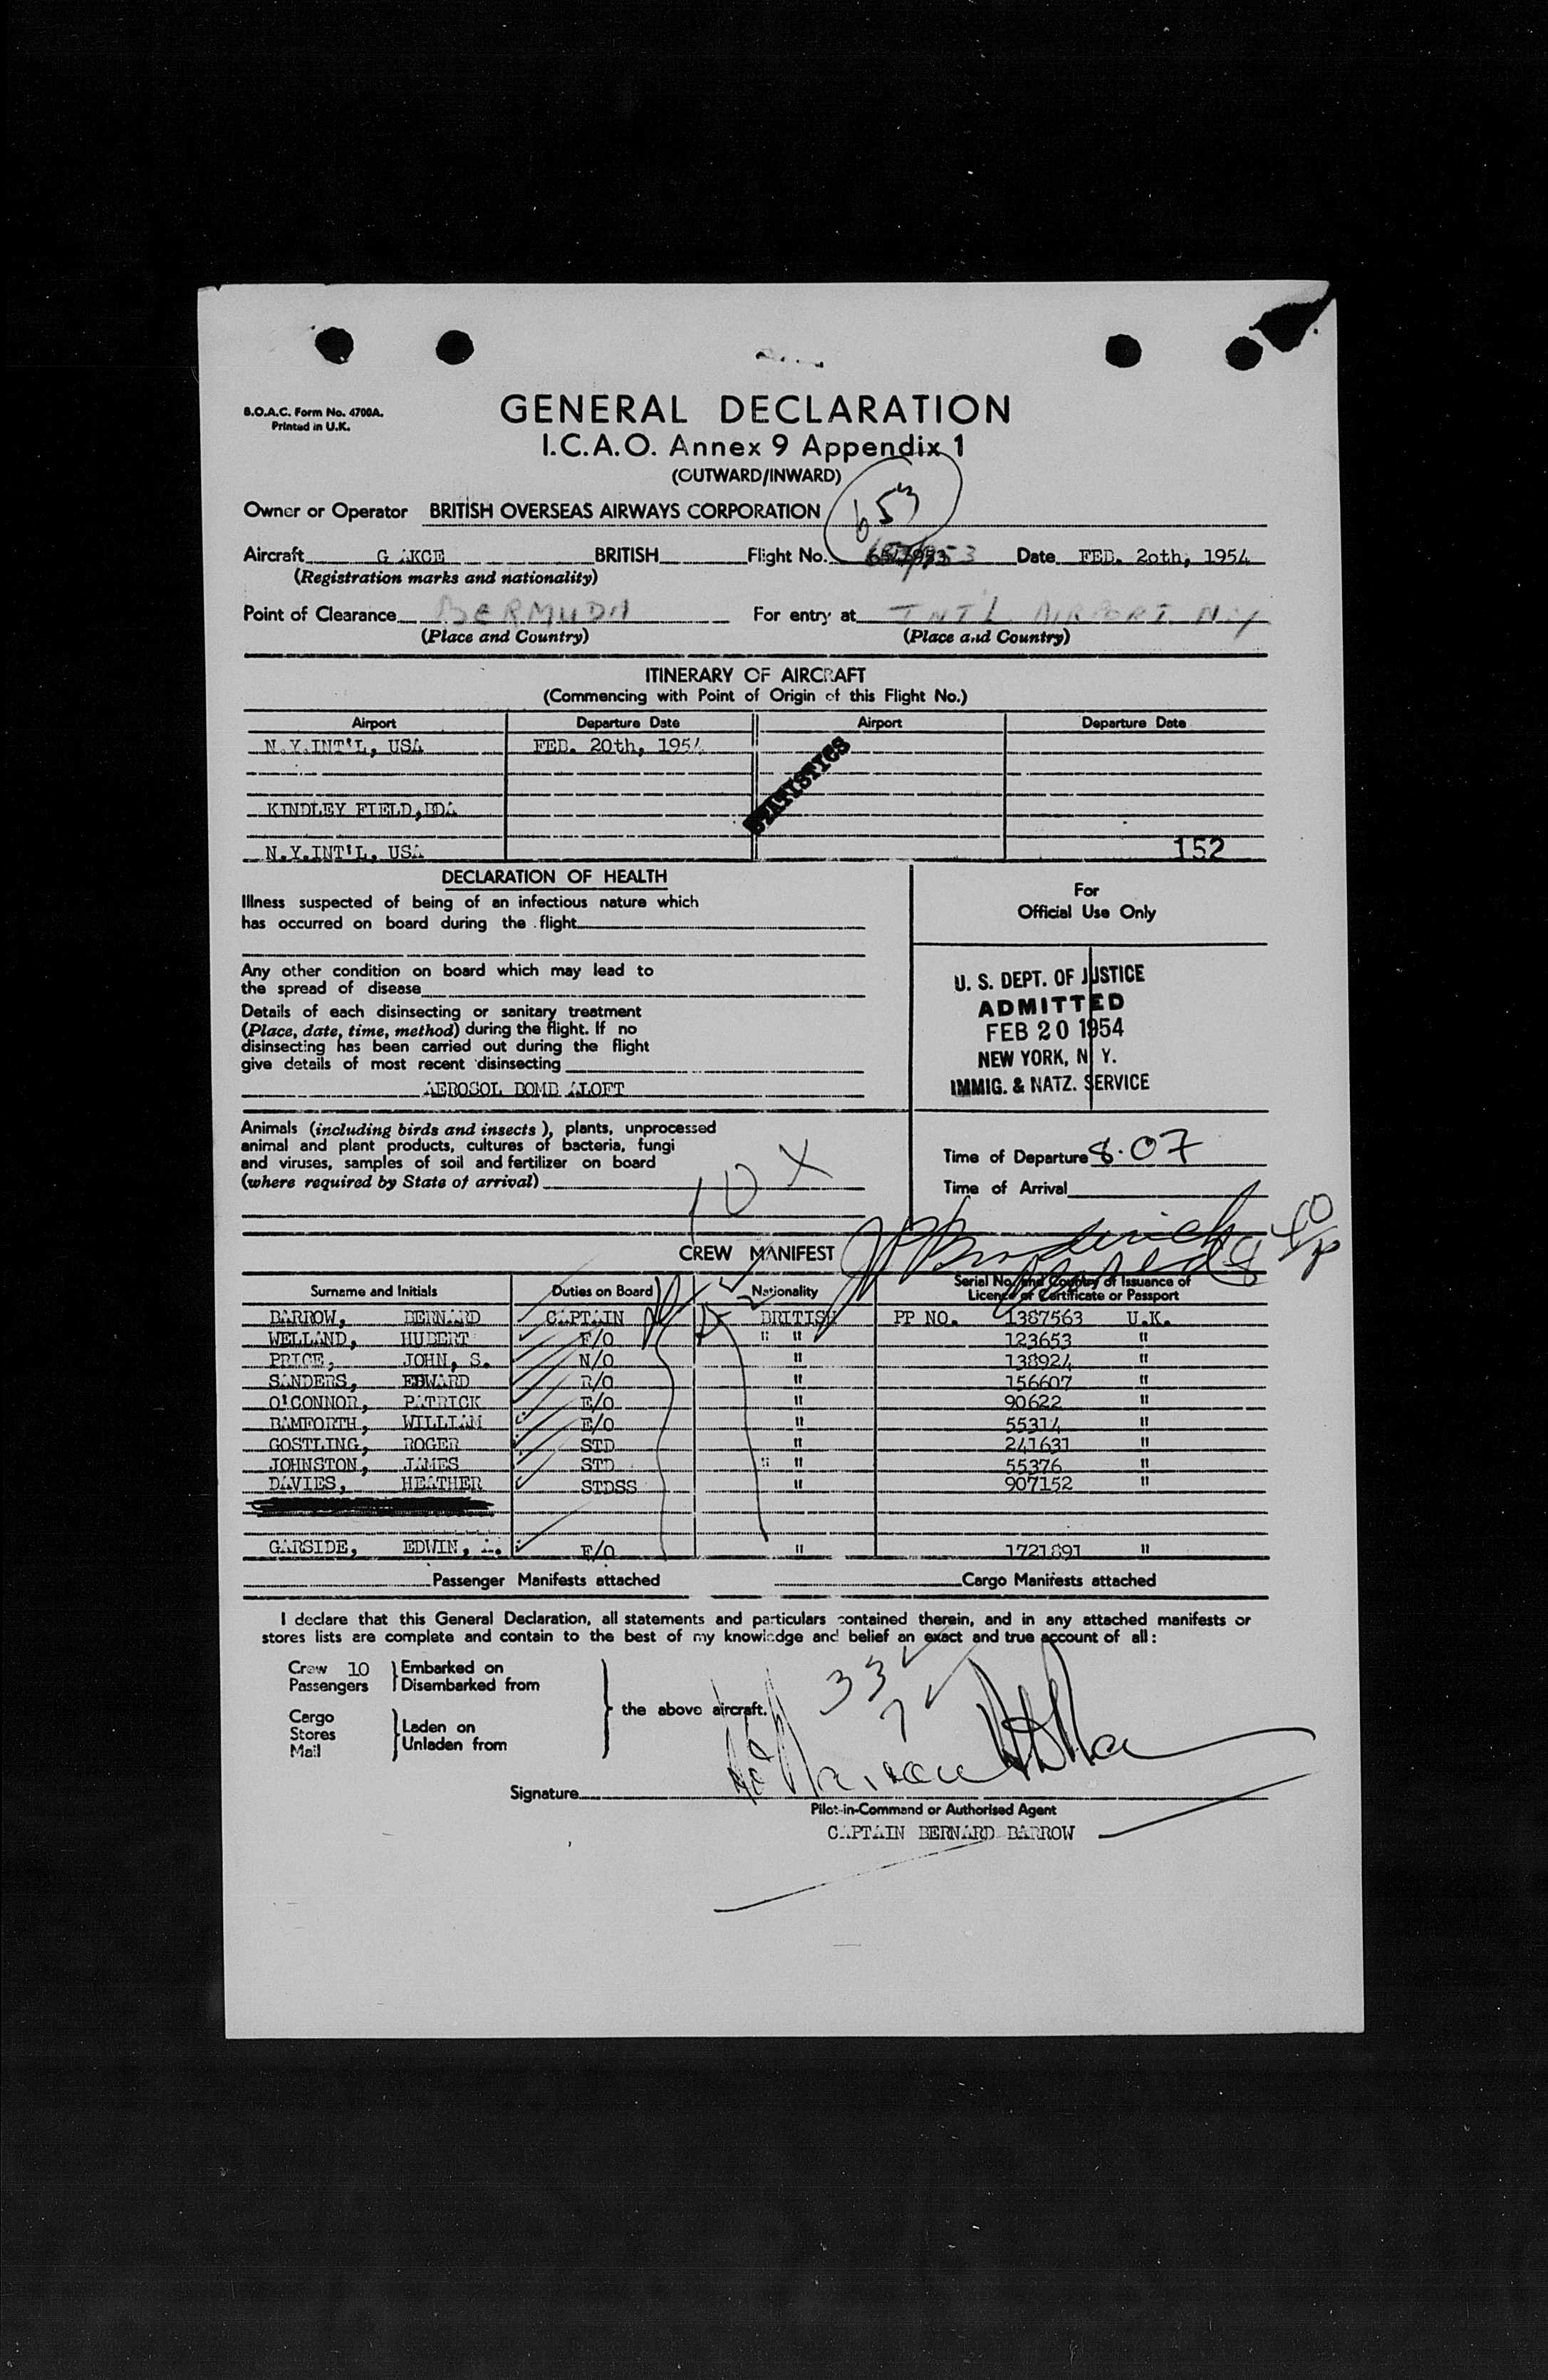 B.O.A.C. Form No. 4700A.
Printed in U.K.
GENERAL DECLARATION
I.C.A.O. Annex 9 Appendix 1
(OUTWARD/INWARD)
653
Owner or Operator BRITISH OVERSEAS AIRWAYS CORPORATION
Aircraft G AKCE BRITISH Flight No. Date FEB. 20th, 1954
(Registration marks and nationality)
Point of Clearance BERMUDA For entry at INT'L AIRPORT N.Y
(Place and Country) (Place and Country)
ITINERARY OF AIRCRAFT
(Commencing with Point of Origin of this Flight No.)
Airport Departure Date Airport Departure Date
N.Y.INT'L, USA FEB. 20th, 1954
STATISTICS
KINDLEY FIELD, BDA
N.Y.INT'L, USA 152
DECLARATION OF HEALTH
Illness suspected of being of an infectious nature which
has occurred on board during the flight
Any other condition on board which may lead to
the spread of disease
Details of each disinsecting or sanitary treatment
(Place, date, time, method) during the flight. If no
disinsecting has been carried out during the flight
give details of most recent disinsecting
AEROSOL BOMB ALOFT
Animals (including birds and insects), plants, unprocessed
animal and plant products, cultures of bacteria, fungi
and viruses, samples of soil and fertilizer on board
(where required by State of arrival)
10 X
For
Official Use Only
U. S. DEPT. OF JUSTICE
ADMITTED
FEB 20 1954
NEW YORK, N. Y.
IMMIG. & NATZ. SERVICE
Time of Departure 8.07
Time of Arrival
CREW MANIFEST
Surname and Initials Duties on Board Nationality Serial No. and Country of Issuance of
Licence or Certificate or Passport
BARROW, BERNARD CAPTAIN BRITISH PP NO. 1387563 U.K.
WELLAND, HUBERT F/O " " 123653 "
PRICE, JOHN, S. N/O " 138924 "
SANDERS, EDWARD R/O " 156607 "
O'CONNOR, PATRICK E/O " 90622 "
BAMFORTH, WILLIAM E/O " 55314 "
GOSTLING, ROGER STD " 241631 "
JOHNSTON, JAMES STD " " 55376 "
DAVIES, HEATHER STDSS " 907152 "
GARSIDE, EDWIN, A. F/O " 1721891 "
Passenger Manifests attached Cargo Manifests attached
I declare that this General Declaration, all statements and particulars contained therein, and in any attached manifests or
stores lists are complete and contain to the best of my knowledge and belief an exact and true account of all:
Crew 10 Embarked on
Passengers Disembarked from
the above aircraft.
Cargo
Stores Laden on
Mail Unladen from
33
7
Signature
Pilot-in-Command or Authorised Agent
CAPTAIN BERNARD BARROW